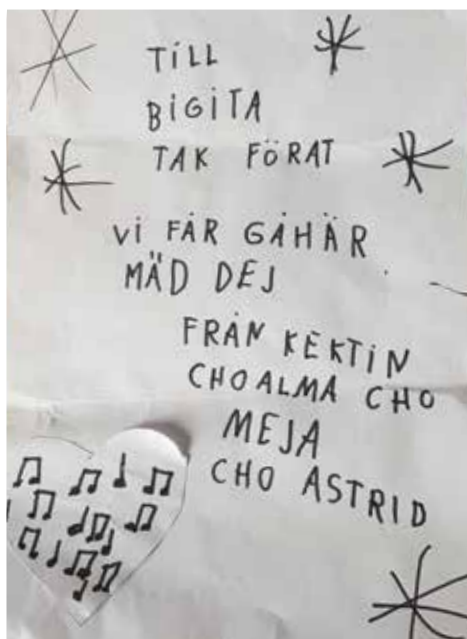 TiLL
BiGiTA
TAK FÖRAT
Vi FÅR GÅHÄR
MÄD DEJ
FRÅN KEKTiN
CHOALMA CHO
MEJA
CHO ASTRID